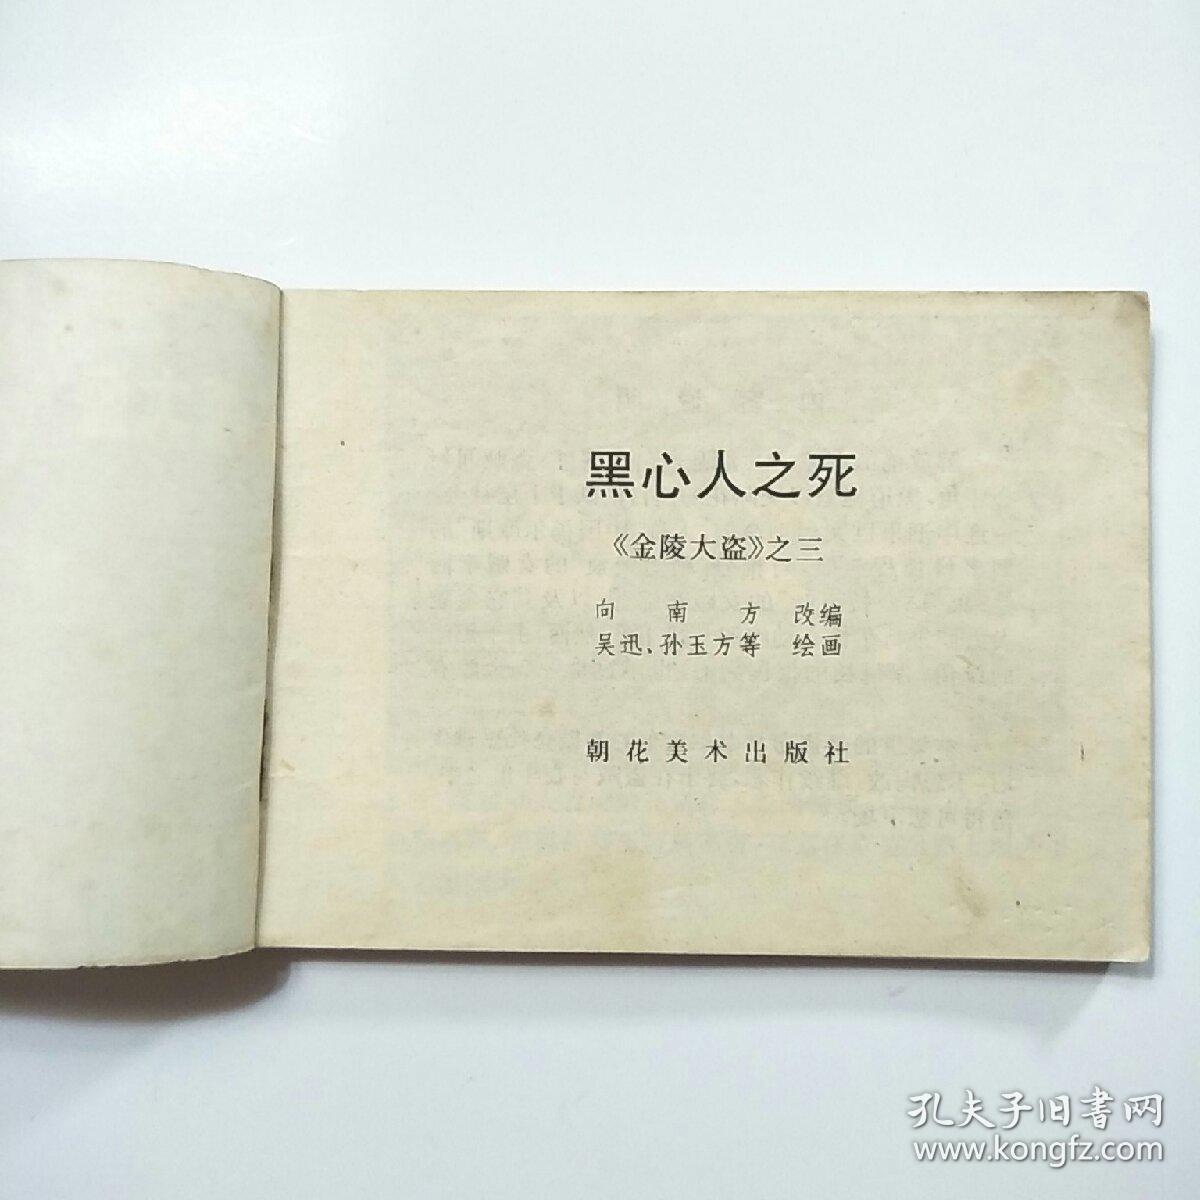 黑心人之死
《金陵大盗》之三
向南方 改编
吴迅、孙玉方等 绘画
朝花美术出版社
孔夫子旧书网
www.kongfz.com